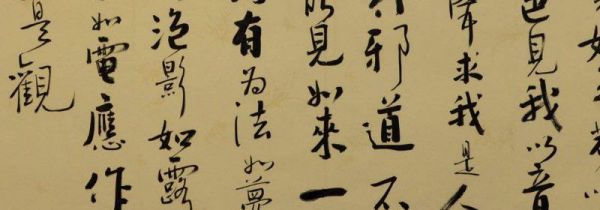 色見我以音
聲求我是人
行邪道不
能見如來一
有为法如夢
泡影如露
如電應作
是觀